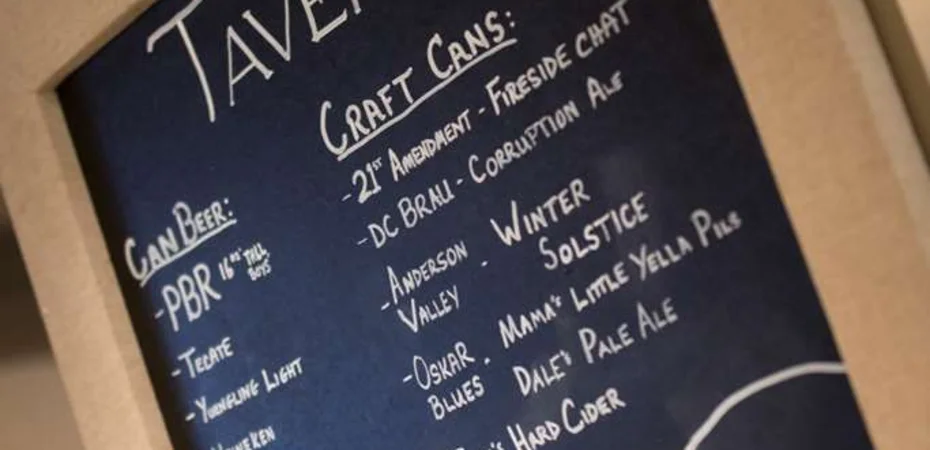 TAVE
CRAFT CANS:
-21ST AMENDMENT - FIRESIDE CHAT
-DC BRAU - CORRUPTION ALE
-ANDERSON VALLEY - WINTER SOLSTICE
-OSKAR BLUES - MAMA'S LITTLE YELLA PILS
DALE'S PALE ALE
HARD CIDER
CAN BEER:
-PBR 16oz TALL BOYS
-TECATE
-YUENGLING LIGHT